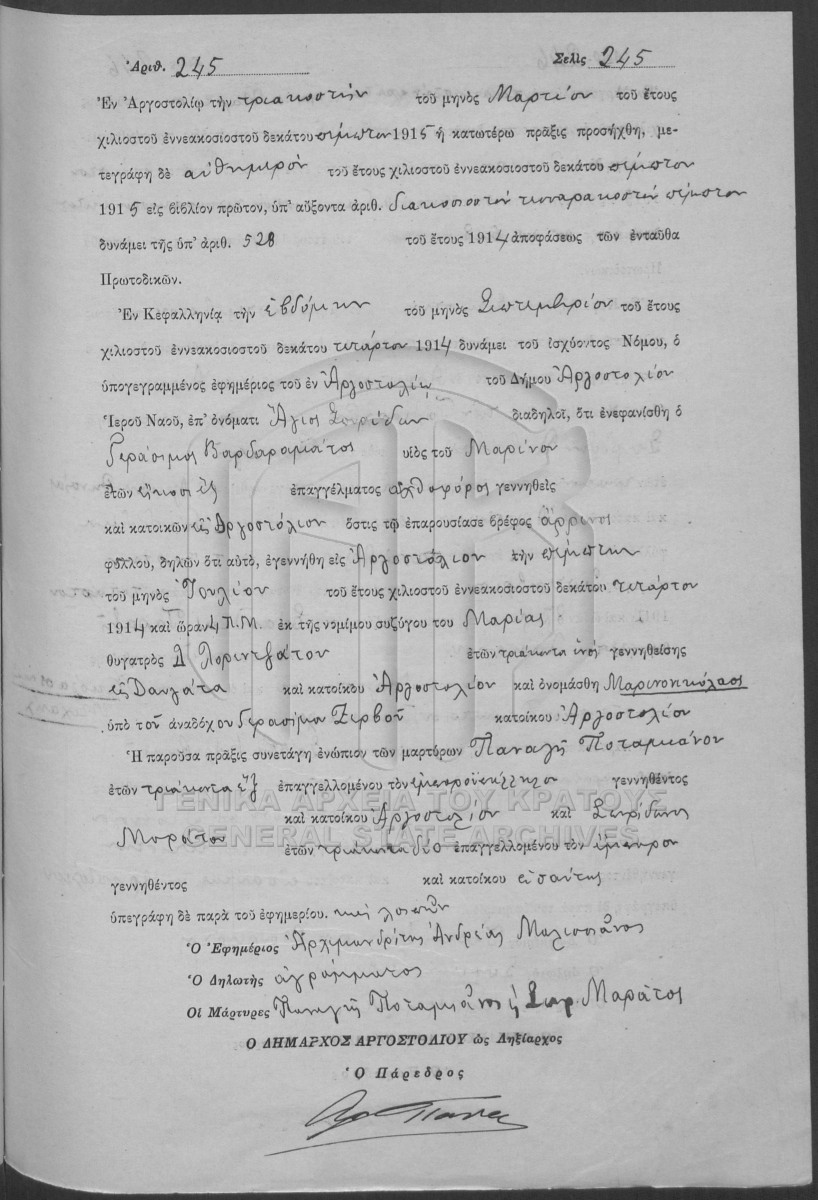 Ἀριθ. 245 Σελὶς 245
Ἐν Ἀργοστολίῳ τὴν τριακοστὴν τοῦ μηνὸς Μαρτίου τοῦ ἔτους
χιλιοστοῦ ἐννεακοσιοστοῦ δεκάτου πέμπτου 1915 ἡ κατωτέρω πρᾶξις προσήχθη, με-
τεγράφη δὲ αὐθημερὸν τοῦ ἔτους χιλιοστοῦ ἐννεακοσιοστοῦ δεκάτου πέμπτου
1915 εἰς βιβλίον πρῶτον, ὑπ' αὔξοντα ἀριθ. διακοσιοστὸν τεσσαρακοστὸν πέμπτον
δυνάμει τῆς ὑπ' ἀριθ. 528 τοῦ ἔτους 1914 ἀποφάσεως τῶν ἐνταῦθα
Πρωτοδικῶν.
Ἐν Κεφαλληνίᾳ τὴν ἑβδόμην τοῦ μηνὸς Σεπτεμβρίου τοῦ ἔτους
χιλιοστοῦ ἐννεακοσιοστοῦ δεκάτου τετάρτου 1914 δυνάμει τοῦ ἰσχύοντος Νόμου, ὁ
ὑπογεγραμμένος ἐφημέριος τοῦ ἐν Ἀργοστολίῳ τοῦ Δήμου Ἀργοστολίου
Ἱεροῦ Ναοῦ, ἐπ' ὀνόματι Ἅγιος Σπυρίδων διαδηλοῖ, ὅτι ἐνεφανίσθη ὁ
Γεράσιμος Βαρδαραμάτος υἱὸς τοῦ Μαρίνου
ἐτῶν εἴκοσι ἓξ ἐπαγγέλματος ἀχθοφόρος γεννηθεὶς
καὶ κατοικῶν εἰς Ἀργοστόλιον ὅστις τῷ ἐπαρουσίασε βρέφος ἄρρενος
φύλλου, δηλῶν ὅτι αὐτὸ, ἐγεννήθη εἰς Ἀργοστόλιον τὴν πέμπτην
τοῦ μηνὸς Ἰουλίου τοῦ ἔτους χιλιοστοῦ ἐννεακοσιοστοῦ δεκάτου τετάρτου
1914 καὶ ὥραν 4 π.μ. ἐκ τῆς νομίμου συζύγου του Μαρίας
θυγατρὸς Δ Λορεντζάτου ἐτῶν τριάκοντα ἑνὸς γεννηθείσης
εἰς Δαυγάτα καὶ κατοίκου Ἀργοστολίου καὶ ὀνομάσθη Μαρινονικόλαος
ὑπὸ τοῦ ἀναδόχου Γερασίμου Ζερβοῦ κατοίκου Ἀργοστολίου
Ἡ παροῦσα πρᾶξις συνετάγη ἐνώπιον τῶν μαρτύρων Παναγῆ Ποταμιάνου
ἐτῶν τριάκοντα ἓξ ἐπαγγελλομένου τὸν ἐμποροϋπάλληλον γεννηθέντος
καὶ κατοίκου Ἀργοστολίου καὶ Σπυρίδωνος
Μαράτου ἐτῶν τριάκοντα δύο ἐπαγγελλομένου τὸν ἔμπορον
γεννηθέντος καὶ κατοίκου ἐνταύθα
ὑπεγράφη δὲ παρὰ τοῦ ἐφημερίου. καὶ λοιπῶν
Ὁ Ἐφημέριος Ἀρχιμανδρίτης Ἀνδρέας Μαλισσιάνος
Ὁ Δηλωτὴς ἀγράμματος
Οἱ Μάρτυρες Παναγῆς Ποταμιάνος Σπυρ. Μαράτος
Ὁ ΔΗΜΑΡΧΟΣ ΑΡΓΟΣΤΟΛΙΟΥ ὡς Ληξίαρχος
Ὁ Πάρεδρος
ΓΕΝΙΚΑ ΑΡΧΕΙΑ ΤΟΥ ΚΡΑΤΟΥΣ
GENERAL STATE ARCHIVES